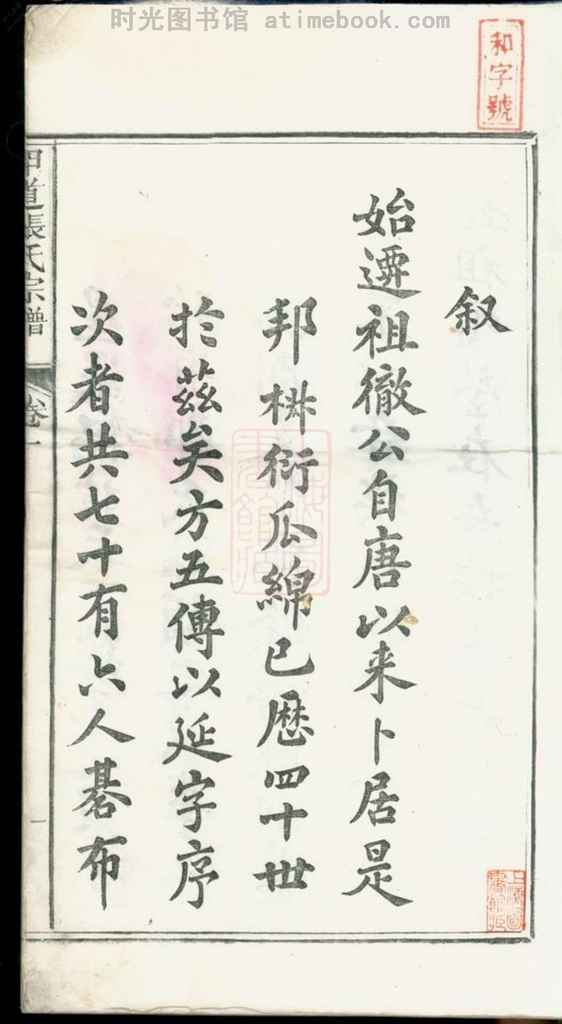 时光图书馆 atimebook.com
和字號
叙
始遷祖徹公自唐以来卜居是
邦椒衍瓜綿已歷四十世
於茲矣方五傳以延字序
次者共七十有六人碁布
申道張氏宗譜
卷一
一